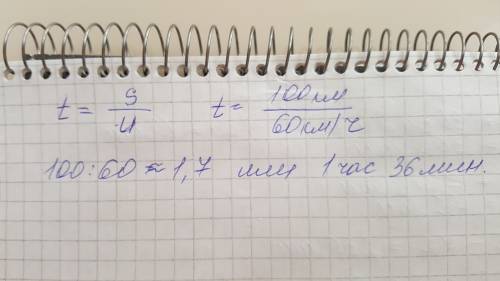 t = S/u t = 100 км/60 км/ч
100:60 ≈ 1,7 или 1 час 36 мин.